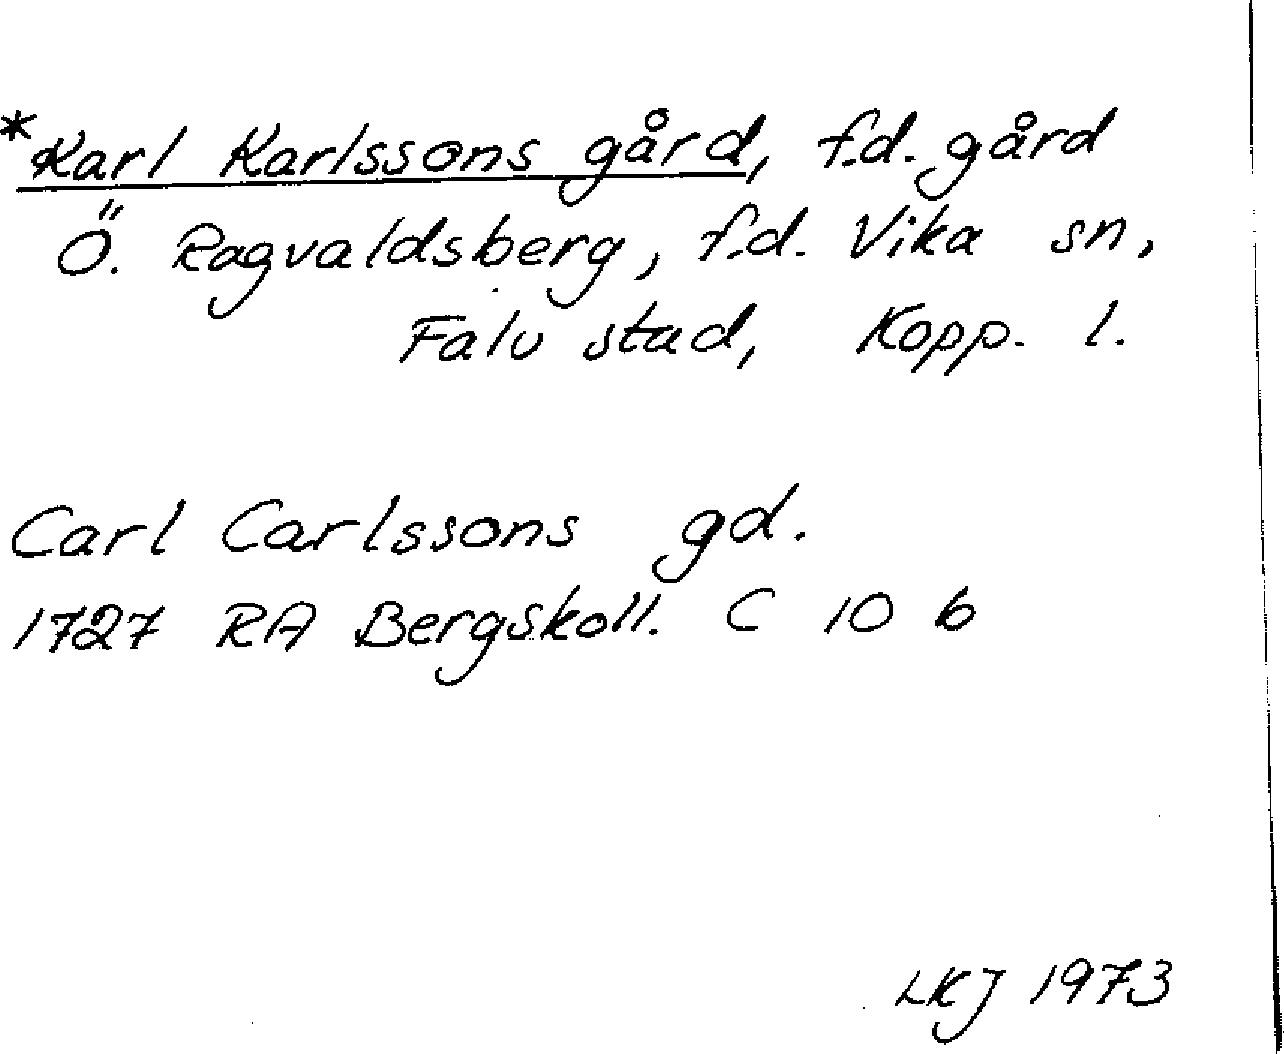 *Karl Karlssons gård, f.d. gård
Ö. Ragvaldsberg, f.d. Vika sn,
Falu stad, Kopp. l.
Carl Carlssons gd.
1727 RA Bergskoll. C 10 b
LKJ 1973